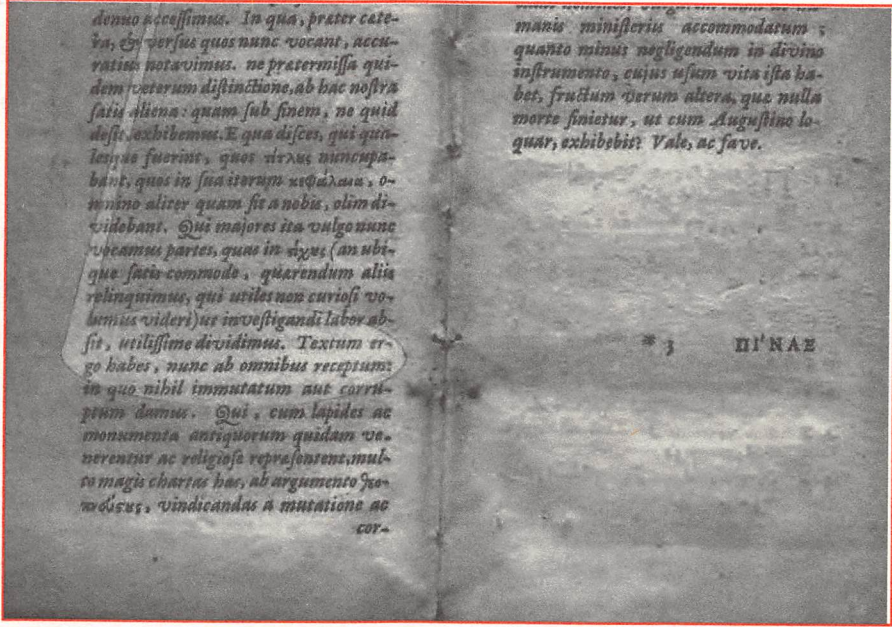 denuo accessimus. In qua, præter cæte-
ra, & versus quos nunc vocant, accu-
ratius notavimus. ne prætermissa qui-
dem veterum distinctione, ab hac nostra
satis aliena: quam sub finem, ne quid
desit, exhibemus. E qua disces, qui qua-
lesque fuerint, quos τίτλυς nuncupa-
bant, quos in sua iterum κεφάλαια, o-
mnino aliter quam fit a nobis, olim di-
videbant. Qui majores ita vulgo nunc
vocamus partes, quas in (an ubi-
que satis commode, quærendum aliis
relinquimus, qui utiles non curiosi vo-
lumus videri) ut investigandi labor ab-
sit, utilissime dividimus. Textum er-
go habes, nunc ab omnibus receptum:
in quo nihil immutatum aut corru-
ptum damus. Qui, cum lapides ac
monumenta antiquorum quidam ve-
nerentur ac religiose repræsentent, mul-
to magis chartas has, ab argumento
vindicandas a mutatione ac
cor-
manis ministeriis accommodatum;
quanto minus negligendum in divino
instrumento, cujus usum vita ista ha-
bet, fructum verum altera, quæ nulla
morte finietur, ut cum Augustino lo-
quar, exhibebit? Vale, ac fave.
* 3 ΠΙ'ΝΑΞ